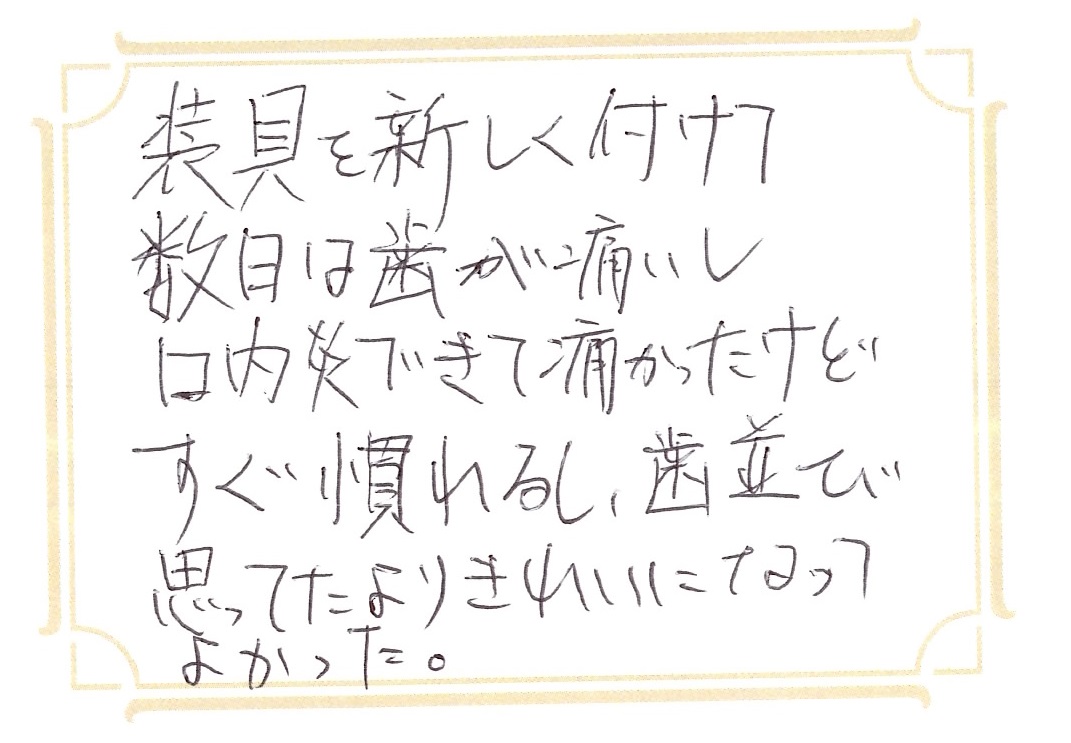 装具を新しく付けて
数日は歯が痛いし
口内炎できて痛かったけど
すぐ慣れるし、歯並び
思ってたよりきれいになって
よかった。